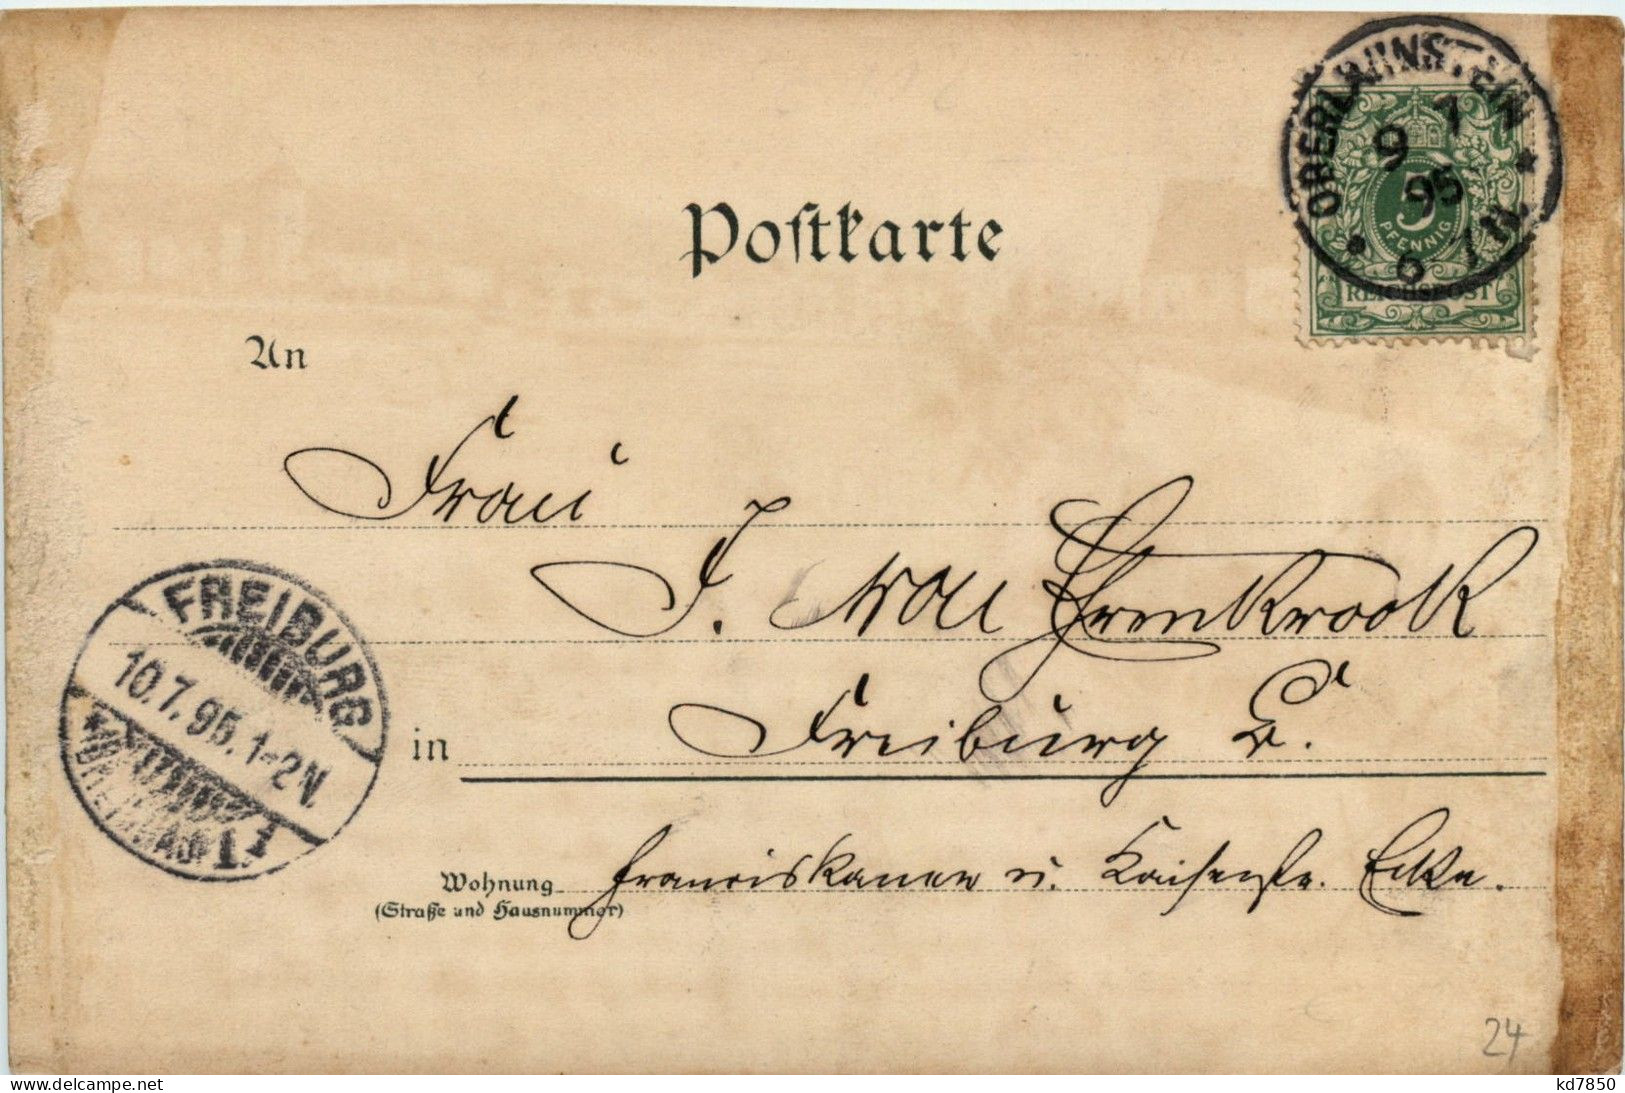 OBERLAHNSTEIN
9 7
95
6 7 N.
5
PFENNIG
REICHSPOST
Postkarte
An
Frau
J. von
in Freiburg B.
Wohnung Franciskaner u. Kaiserstr. Ecke.
(Straße und Hausnummer)
FREIBURG
10.7.95.1-2N.
* (BREISGAU) 1 *
24
delcampe.net
kd7850